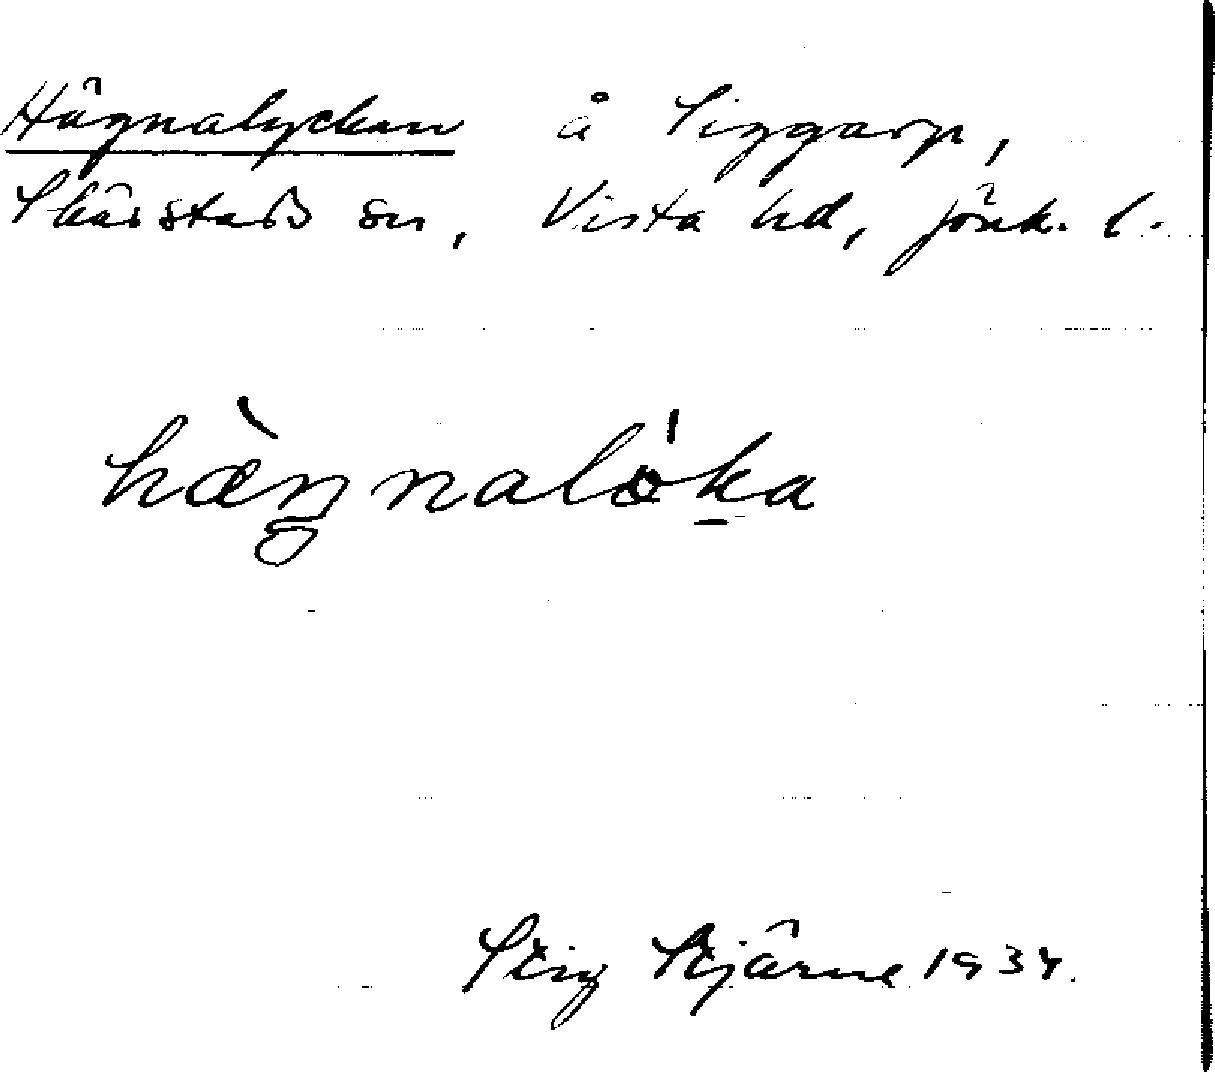 Hägnalyckan å Siggarp,
Skärstads sn, Vista hd, Jönk. l.
hæ̀ŋnalö́ka
Stig Stjärne 1934.